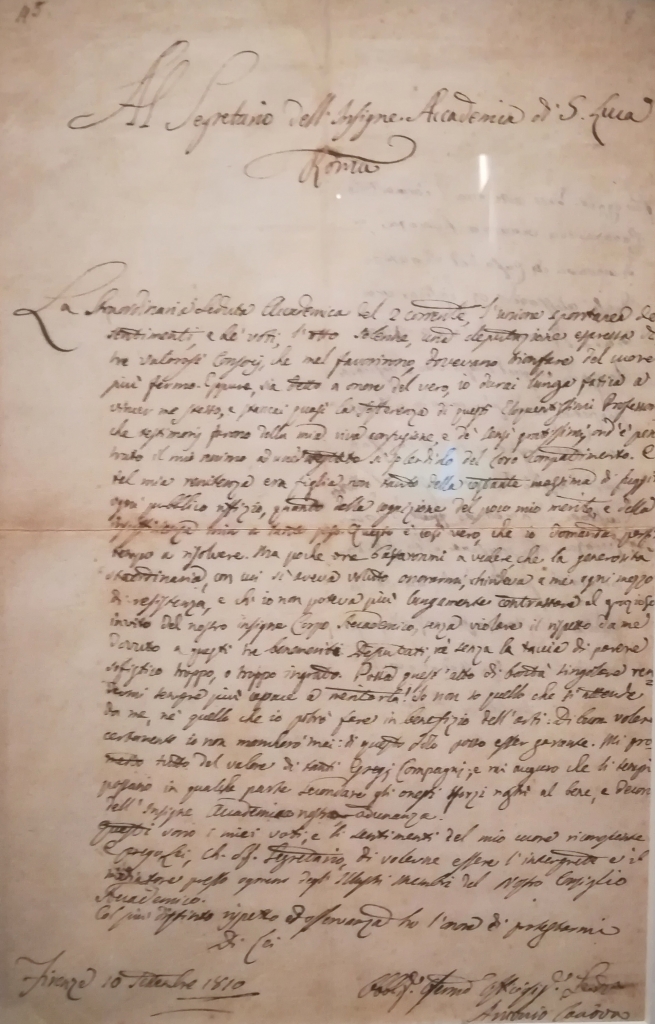 Al Segretario dell'Insigne Accademia di S. Luca
Roma
La straordinaria seduta Accademica del 2 corrente, l'unione spontanea de
sentimenti, e de' voti, l'atto solenne, una deputazione espressa di
tre valorosi Consocj, che mel favorirono, dovevano trionfare del cuore
più fermo. Eppure, sia detto a onore del vero, io durai lunga fatica a
vincer me stesso, e stancai quasi la sofferenza di questi Professori
che testimonj furono della mia viva confusione, e de' sensi gratissimi, ond'è pene
trato il mio animo ad una sì splendido del loro compatimento. E
tal mia renitenza era figlia non tanto della costante massima di fuggir
ogni pubblico uffizio, quanto della cognizione del poco mio merito, e della
insufficienza mia a tanto peso. Questo è così vero, che io domandai
tempo a risolvere. Ma poche ore bastaronmi a vedere, che la generosità
straordinaria, con cui si aveva voluto onorarmi, chiudeva a me ogni mezzo
di resistenza, e che io non poteva più lungamente contrastare al grazioso
invito del nostro insigne Corpo Accademico, senza violare il rispetto da me
dovuto a questi tre benemeriti Deputati, nè senza la taccia di parere
sofistico troppo, o troppo ingrato. Possa quest'atto di bontà singolare ren-
dermi sempre più capace a meritarla! Io non so quello che si attende
da me, nè quello che io potrò fare in benefizio dell'arti. Di buon volere
certamente io non mancherò mai: di questo solo posso esser garante. Mi pro-
metto tutto del valore di tanti Egregj Compagni; e mi auguro che li tempi
possano in qualche parte secondare gli onesti sforzi nostri al bene, e decoro
dell'Insigne Accademica nostra adunanza.
Questi sono i miei voti, e li sentimenti del mio cuore riconoscente
E prego Lei, Segretario, di volerne essere l'interprete e il
mediatore presso ognuno degli Illustri Membri del Nostro Consiglio
Accademico.
Col più distinto rispetto ed osservanza ho l'onore di protestarmi
Di Lei
Firenze 10 Settembre 1810
Servo
Antonio Canova